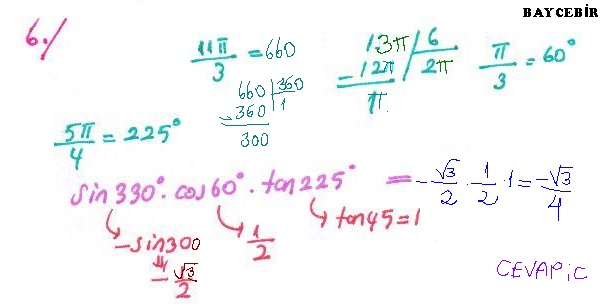 BAYCEBİR
6./
11π/3 = 660
660 | 360
- 360 | 1
300
13π | 6
- 12π | 2π
π
π/3 = 60°
5π/4 = 225°
sin330°. cos60°. tan225° = -√3/2 . 1/2 . 1 = -√3/4
-sin300
-√3/2
1/2
tan45=1
CEVAP İC